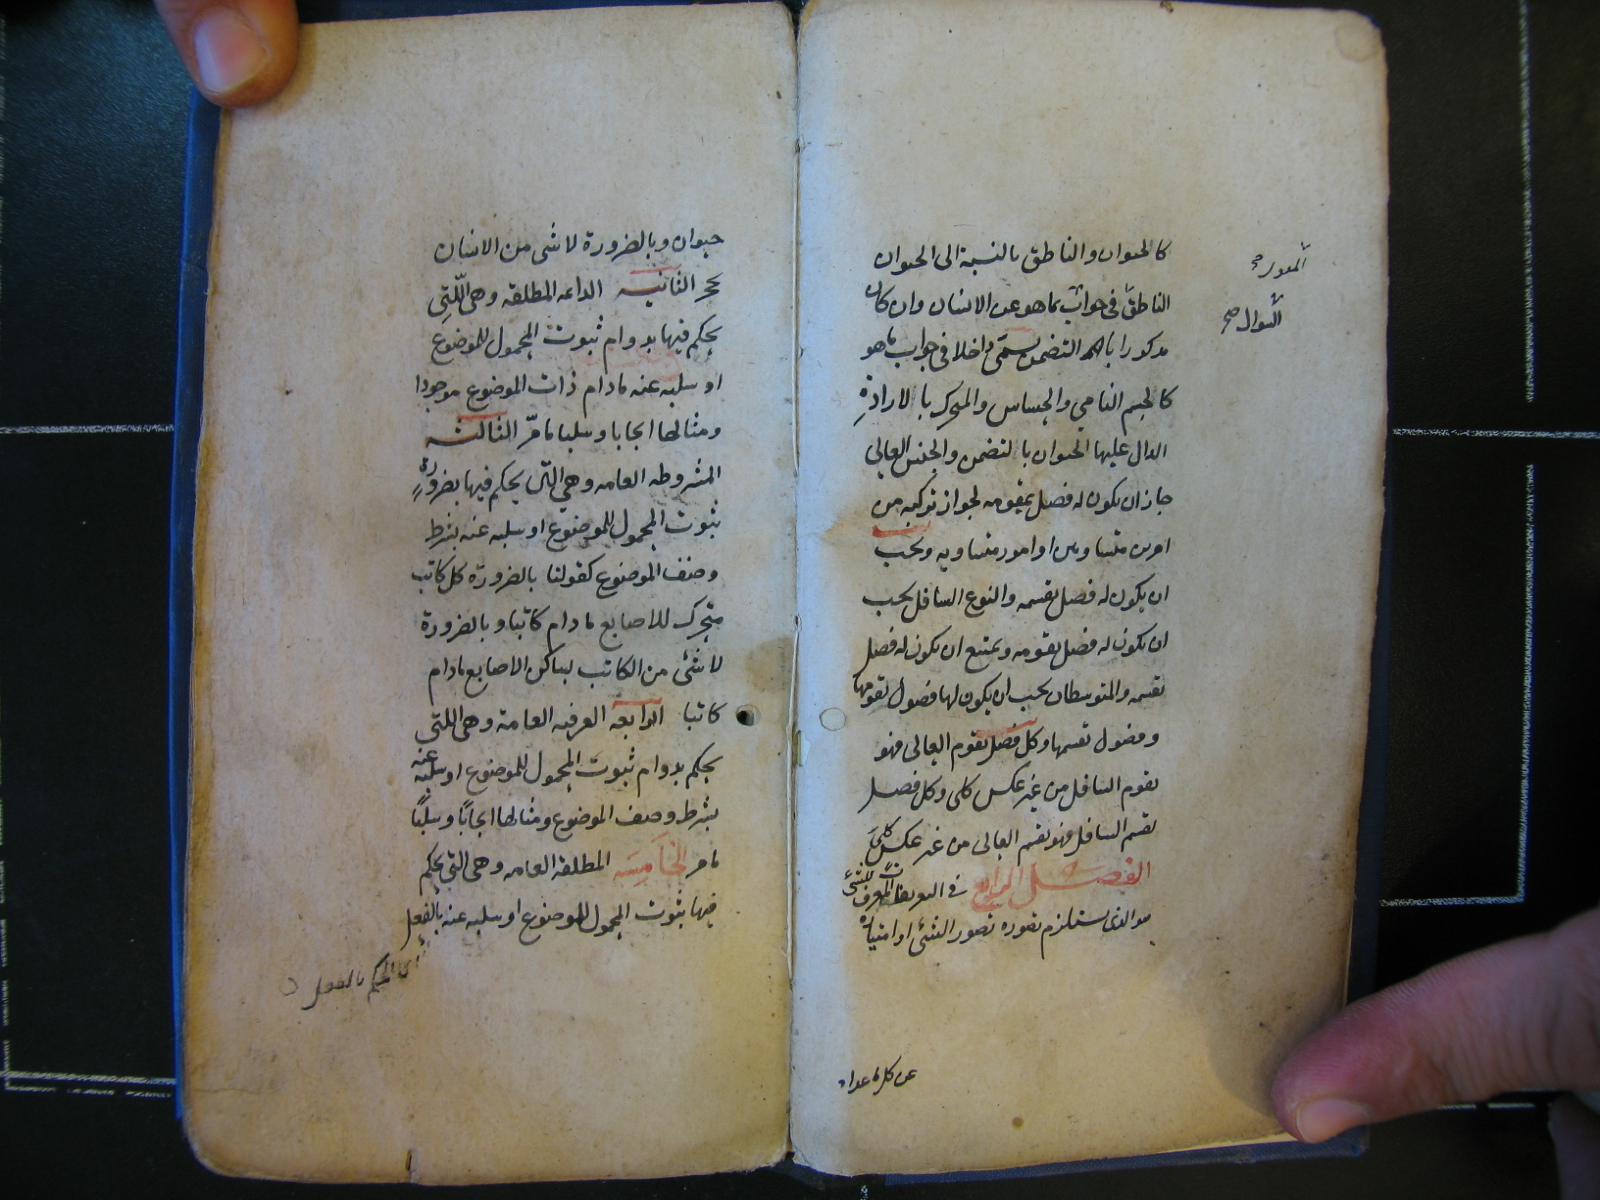 كالحيوان والناطق بالنسبة الى الحيوان
الناطق فى جواب بما هو عن الانسان وان كان
مذكورا بالتضمن يسمى داخلا فى جواب ما هو
كالجسم النامي والحساس والمتحرك بالارادة
الدال عليها الحيوان بالتضمن والجنس العالي
جاز ان يكون له فصل يقومه لجواز تركبه من
امرين متساويين او امور متساويه ويجب
ان يكون له فصل يقسمه والنوع السافل يجب
ان يكون له فصل يقومه ويمتنع ان يكون له فصل
يقسمه والمتوسطات يجب ان يكون لها فصول تقومها
وفصول تقسمها وكل فصل يقوم العالى فهو
يقوم السافل من غير عكس كلى وكل فصل
يقسم السافل فهو يقسم العالى من غير عكس كلى
الفصل الرابع فى التعريفات المعرف للشئ
هو الذى يستلزم تصوره تصور الشئ او امتيازه
عن كل ما عداه
السوال صح
حيوان وبالضرورة لا شى من الانسان
بحجر الثانيه الدائمه المطلقه وهى اللتى
يحكم فيها بدوام ثبوت المحمول للموضوع
او سلبه عنه مادام ذات الموضوع موجودا
ومثالها ايجابا وسلبا مامرّ الثالثه
المشروطه العامه وهي التى يحكم فيها بضرورة
ثبوت المحمول للموضوع او سلبه عنه بشرط
وصف الموضوع كقولنا بالضرورة كل كاتب
متحرك للاصابع مادام كاتبا وبالضرورة
لا شئ من الكاتب بساكن الاصابع مادام
كاتبا الرابعه العرفيه العامة وهى اللتى
يحكم بدوام ثبوت المحمول للموضوع او سلبه عنه
بشرط وصف الموضوع ومثالها ايجابًا وسلبًا
مامر الخامسه المطلقه العامه وهى التى يحكم
فيها بثبوت المحمول للموضوع او سلبه عنه بالفعل
اى الحكم بالفعل